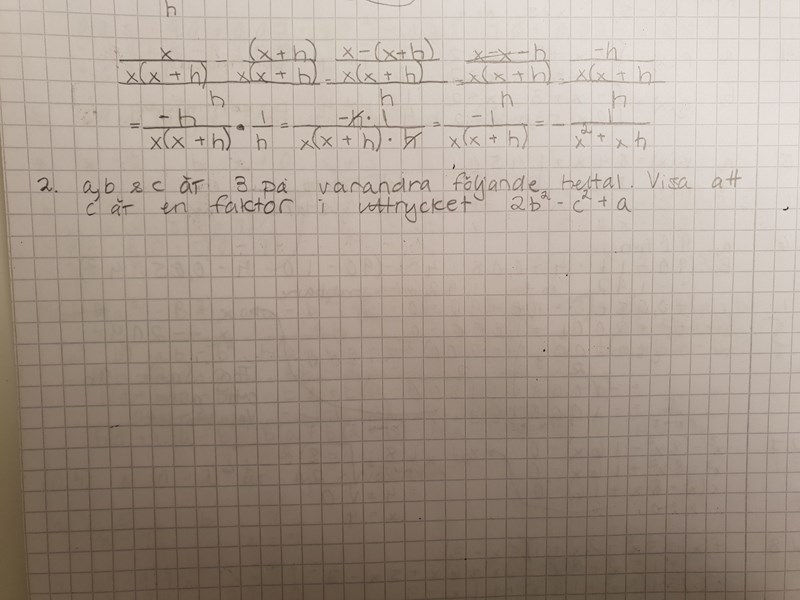 h
x/(x(x+h)) - (x+h)/(x(x+h)) / h = (x-(x+h))/(x(x+h)) / h = (x-x-h)/(x(x+h)) / h = -h/(x(x+h)) / h
= -h/(x(x+h)) · 1/h = -h·1/(x(x+h)·h) = -1/(x(x+h)) = - 1/(x²+xh)
2. a,b & c är 3 på varandra följande heltal. Visa att
c är en faktor i uttrycket 2b²-c²+a